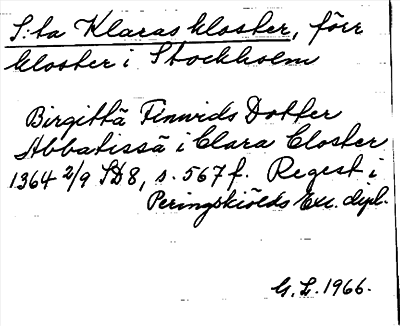 S:ta Klaras kloster, förr
kloster i Stockholm
Birgittä Finvids Dotter
Abbatissä i Clara Closter
1364 2/9 SD8, s. 567 f. Regest i
Peringskiölds Exc. dipl.
G. L. 1966.